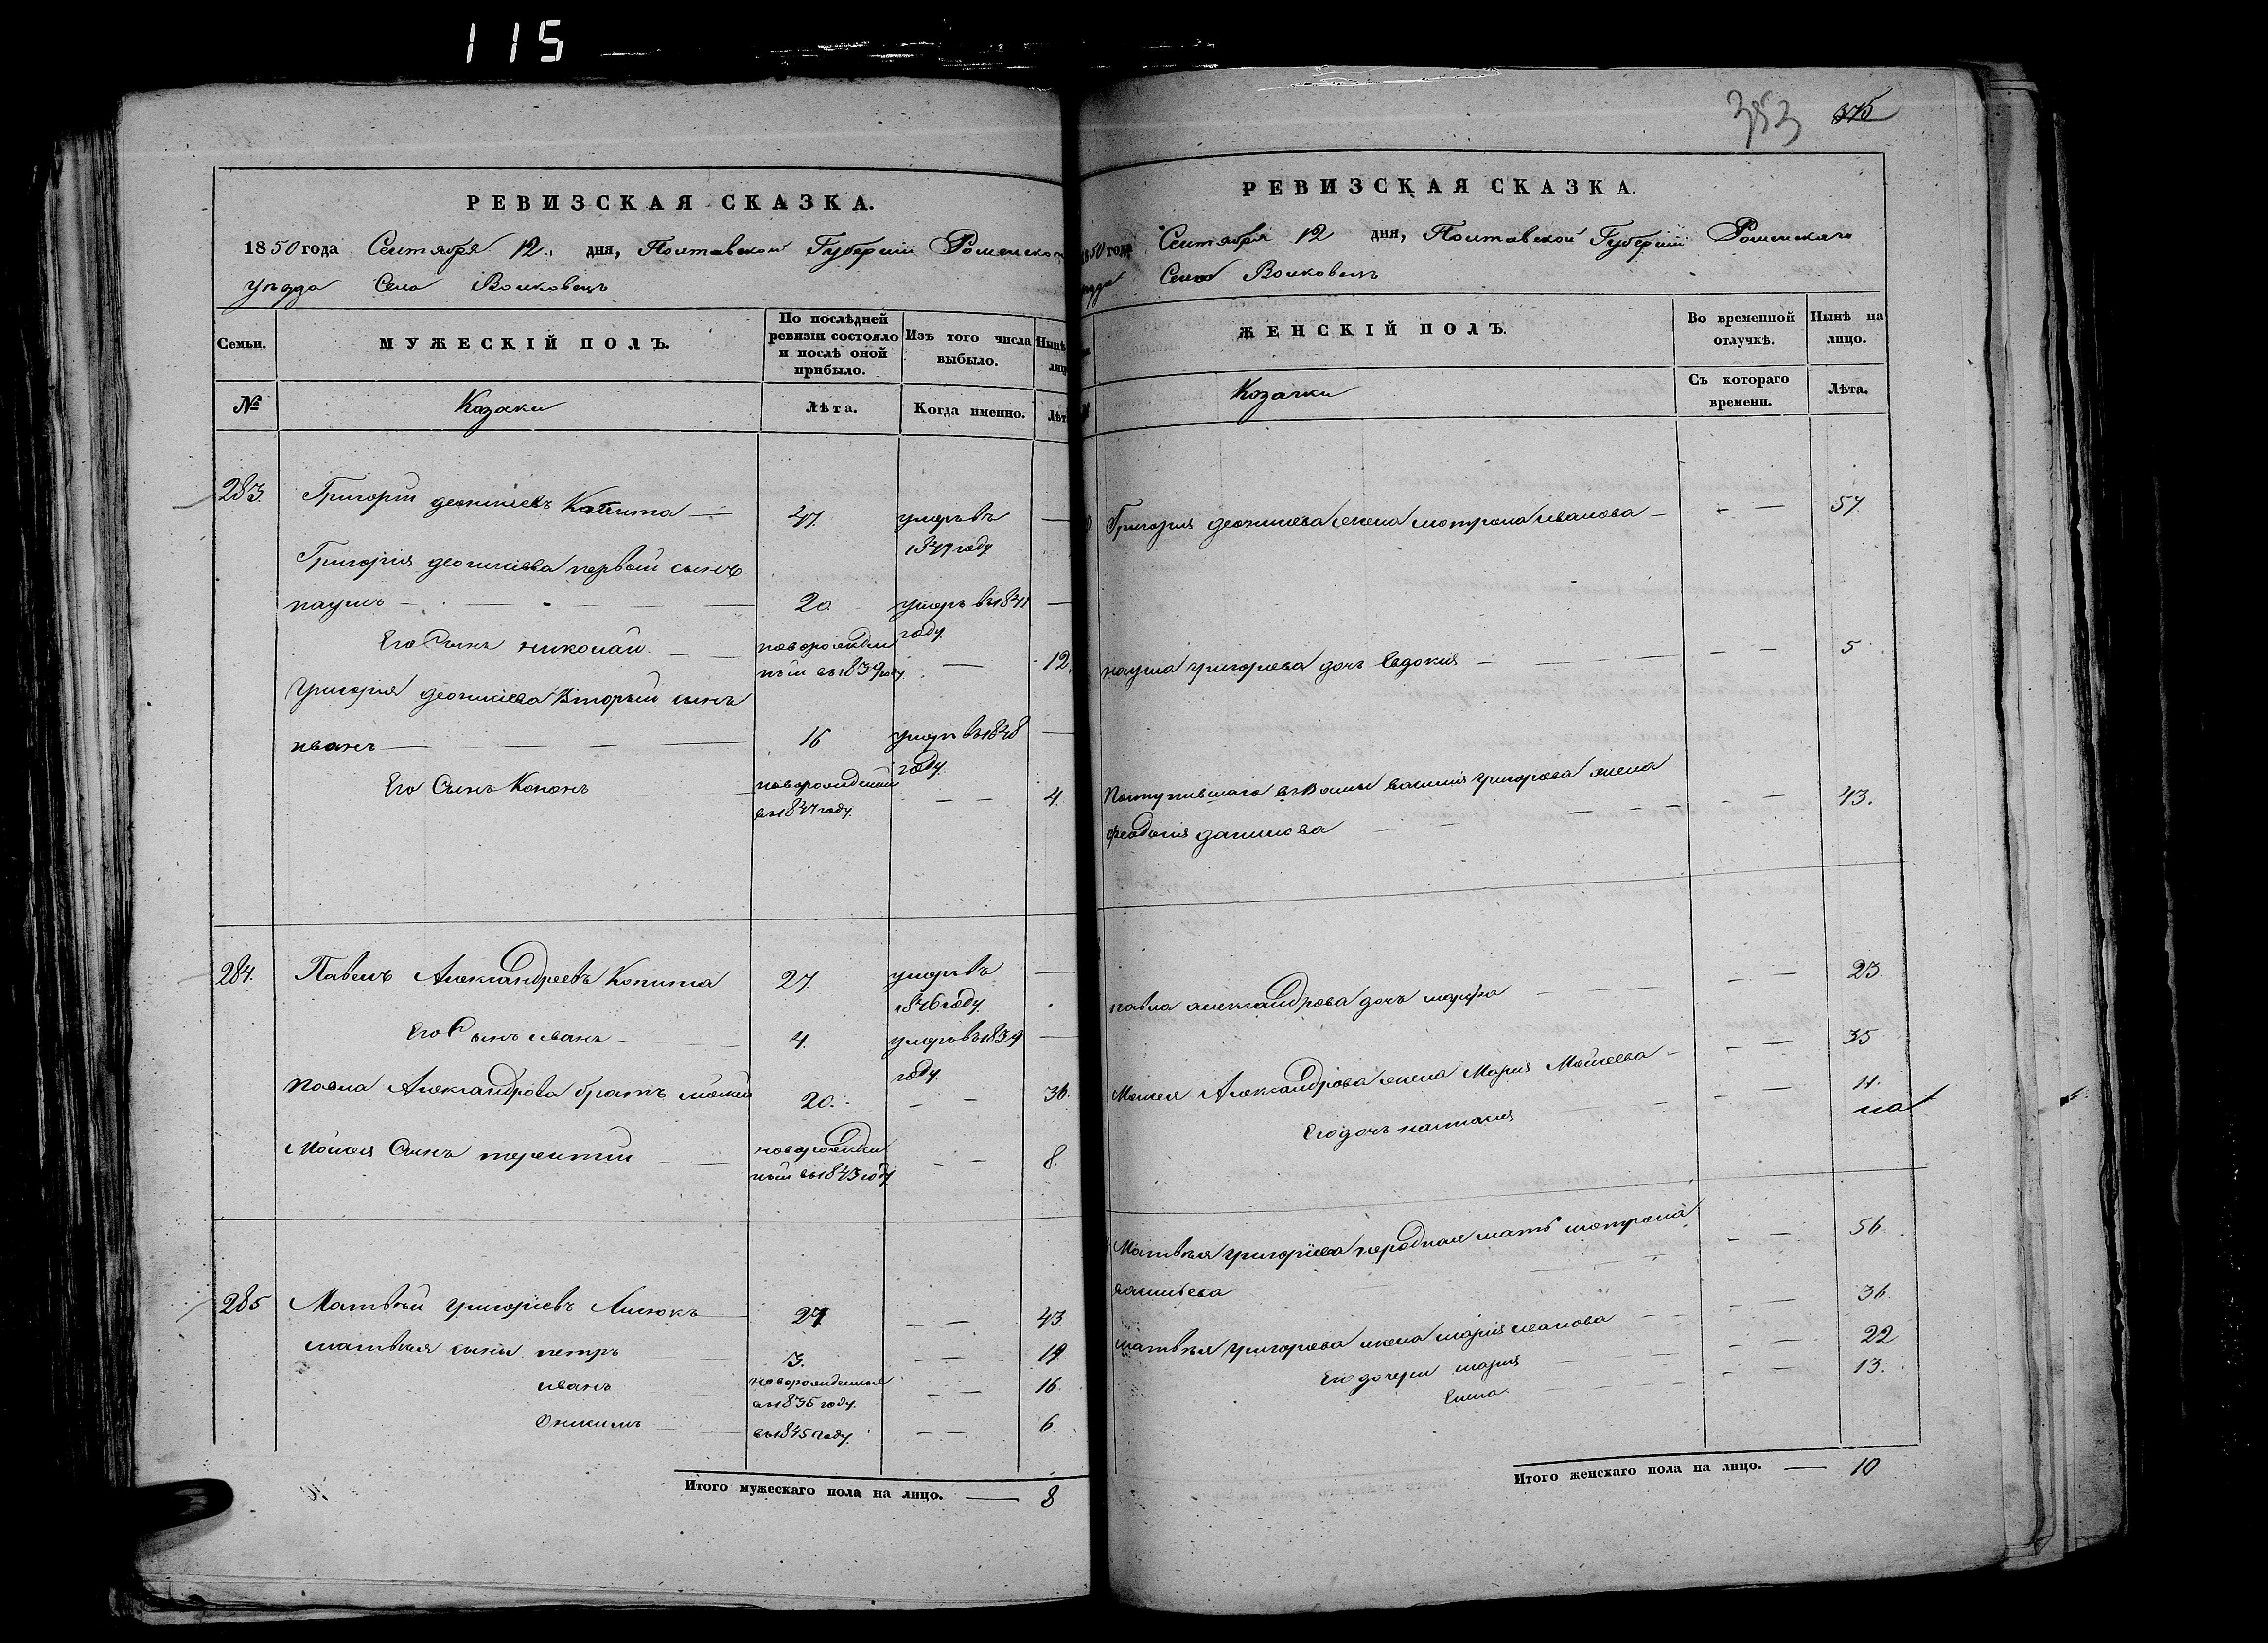 115
РЕВИЗСКАЯ СКАЗКА.
1850 года Сентября 12. дня, Полтавской Губернии Роменского
уезда Села Волковецъ
Семьи.
МУЖЕСКІЙ ПОЛЪ.
По послѣдней ревизіи состояло и послѣ оной прибыло.
Изъ того числа выбыло.
Нынѣ
№
Козаки
Лѣта.
Когда именно.
283. Григорій Капита — 47. умеръ въ —
1849 году
Григорія первый сынъ
наумъ — 20 умеръ въ 1841 —
году
Его Сынъ николай — новорожден
ный въ 1839 году — 12.
Григорія Вторый сынъ
иванъ — 16 умеръ въ 1848 —
году
Его Сынъ Кононъ новорожденный — — 4.
въ 1847 году.
284. Павелъ Александровъ Копита 27. умеръ въ —
1846 году
Его Сынъ иванъ — 4. умеръ въ 1839 —
году
Павла Александрова братъ мойсей 20. — — 36.
Мойсея Сынъ терентий новорожден — — 8.
ный въ 1843 году
285 Матвѣй григоріевъ 27 — — 43
матвѣя сыны петръ 3. — — 19
иванъ новорожденныя — — 16
въ 1835 году.
Оникимъ въ 1845 году — — 6.
Итого мужескаго пола на лицо. — 8
353 375
РЕВИЗСКАЯ СКАЗКА.
1850 года Сентября 12 дня, Полтавской Губерніи Роменскаго
Села Волковецъ
ЖЕНСКІЙ ПОЛЪ.
Во временной отлучкѣ.
Нынѣ на лицо.
Козачки
Съ котораго времени.
Лѣта.
Григорія жена мотрона иванова — — — 57.
наума григорьева дочь Евдокия — — — 5
Поступившаго василія григорьева жена — — 43.
феодосия данилова
павла александрова дочь марфа — — 23.
Мойсея Александрова жена Мария Мойсеева — — — 35
Его дочь наталия — — 11.
на
Матвѣя григоріева неродная мать мотрона — — 56
васильева
матвѣя григорьева жена мария иванова — — 36
Его дочери мария — — 22
Елена — — 13.
Итого женскаго пола на лицо. — 10